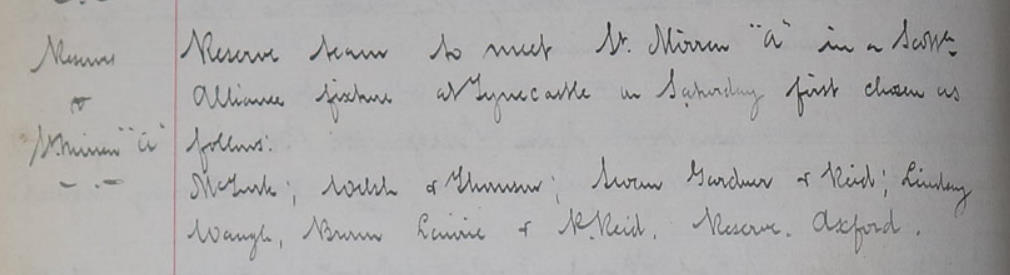 Reserves
v
St. Mirren "A"
Reserve team to meet St. Mirren "A" in a Scottn
Alliance fixture at Tynecastle on Saturday first chosen as
follows:
McGurk; Welsh & Thomson; Brown Gardner & Reid; Lindsay
Waugh, Brown Lawrie & R. Reid. Reserve. Oxford.